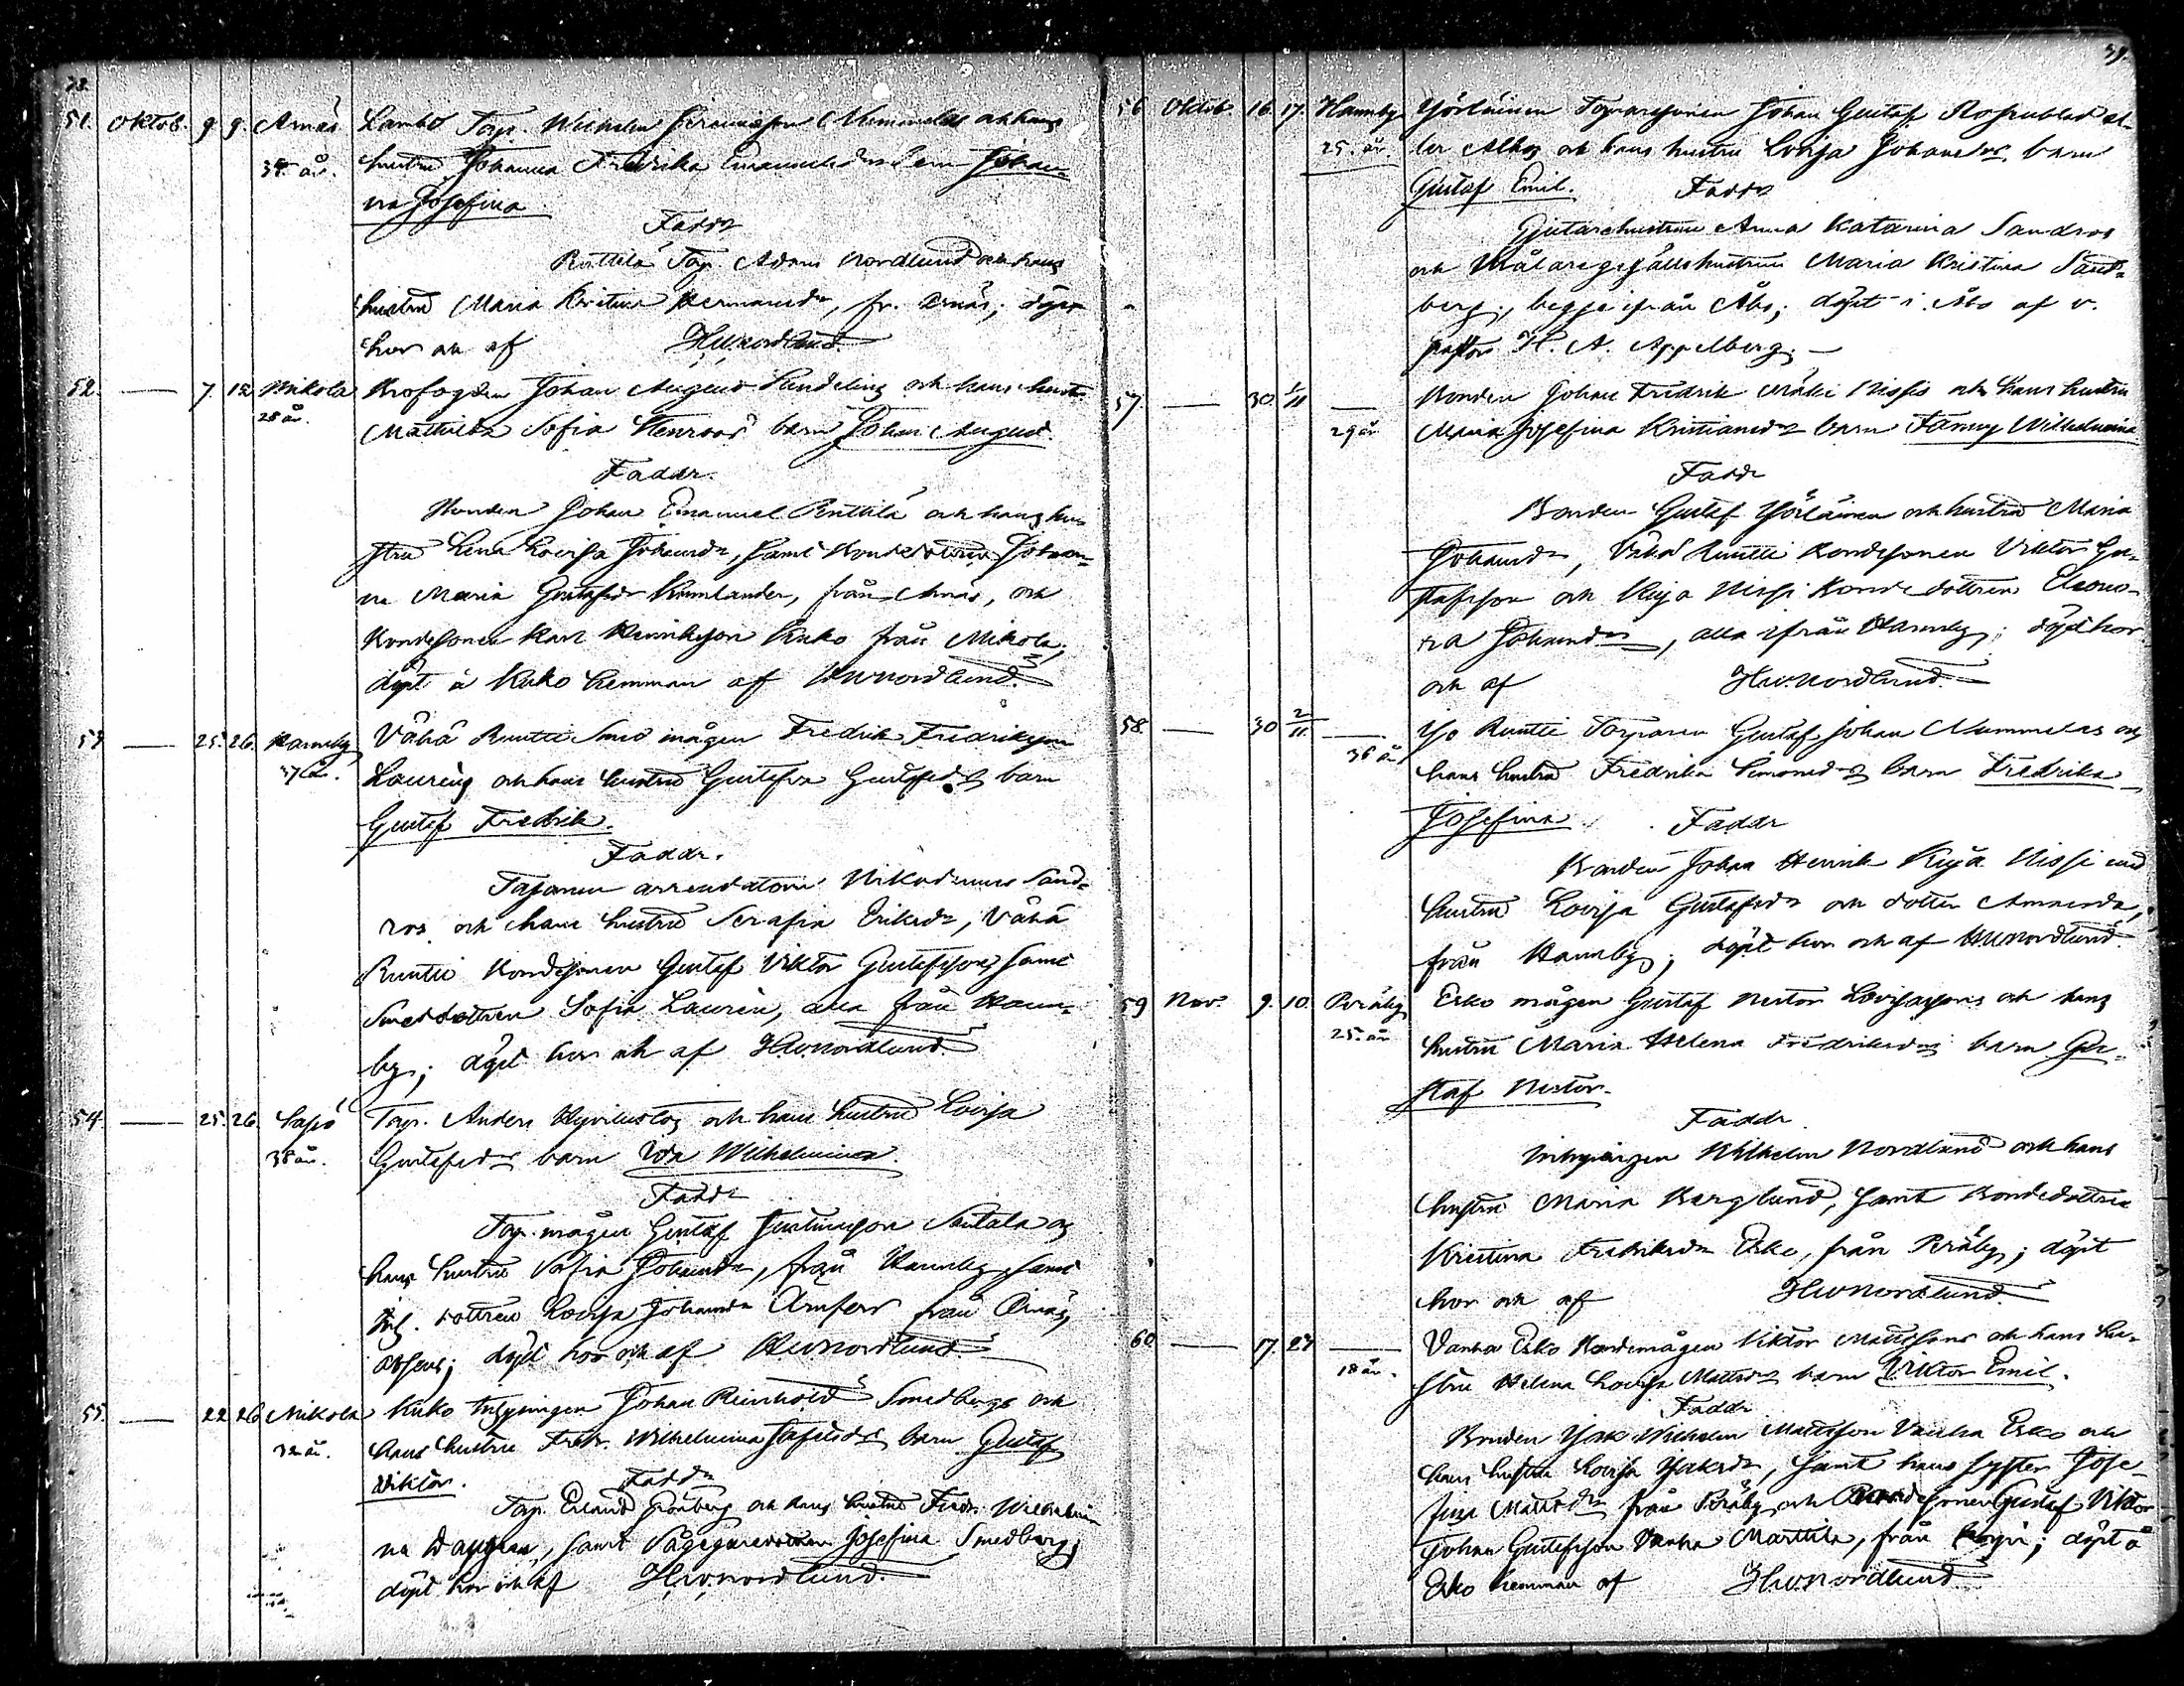 51. Oktob. 9 9. Arnäs Lambo Torp. Wilhelm Mummelas och hans
34 år. hustru Johanna Fredrika Emanuelsdr barn Johan-
na Josefina.
Faddr
Ruttila Torp. Adam Nordlund och hans
hustru Maria Kristina Hermansdr, fr. Arnäs; döpt
hos och af H.W.Nordlund.
52. — 7. 12 Mikola Krofogden Johan August Sundeling och hans hustru
28 år. Mathilda Sofia Stenroos barn Johan August.
Faddr.
Bonden Johan Emanuel Ruttila och hans hu-
stru Lena Lovisa Johansdr, samt Bondedottren Johan-
na Maria Gustafsdr Kumlander, från Arnäs, och
Bondesonen Karl Henriksson Kuko från Mikola;
döpt å Kuko hemman af H.W.Nordlund.
53 — 25. 26. Hannuby Vähä Runtti Smed mågen Fredrik Fredriksson
37 år. Laurens och hans hustru Gustafva Gustafsdr barn
Gustaf Fredrik.
Faddr.
arrendatorn Nikodemus Sand-
ros och hans hustru Serafia Eriksdr, Vähä
Runtti Bondesonen Gustaf Viktor Gustafsson, samt
Smeddottren Sofia Lauren, alla från Hannu-
by; döpt hos och af H.W.Nordlund.
54. — 25. 26. Sapö Torp. Anders och hans hustru Lovisa
38 år. Gustafsdr barn Ida Wilhelmina.
Faddr
Torp. mågen Gustaf Santala och
hans hustru Sofia Johansdr, från Hannuby, samt
Inh. dottren Lovisa Johansdr från Arnäs,
döpt hos och af H.W.Nordlund.
55. — 22 26 Mikola Kuko Inhysingen Johan Reinhold Smedbergs och
32 år. hans hustru Fredr. Wilhelmina barn Gustaf
Viktor. Faddr
Torp. Erland Grönberg och hans hustru Fredr. Wilhelmi-
na samt Josefina Smedberg;
döpt hos och af H.W.Nordlund.
39.
56 Oktob. 16. 17. Hannuby Yörläinen Torparesonen Johan Gustaf el-
25. år. ler och hans hustru Lovisa Johansdr barn
Gustaf Emil. Faddr
Gjutarehustrun Anna Katarina Sandros
och Målaregesällshustrun Maria Kristina Sand-
berg, begge ifrån Åbo; döpt i Åbo af v.
pastor H. A. Appelberg. —
57. — 30. 1/11 — Bonden Johan Fredrik och hans hustru
29 år Maria Josefina Kristiansdr barn Fanny Wilhelmina
Faddr
Bonden Gustaf Yörläinen och hustru Maria
Johansdr, Vähä Runtti Bondesonen Viktor Gu-
stafsson och Nissi Bondedottren Eleono-
ra Johansdr, alla ifrån Hannuby; döpt hos
och af H.W.Nordlund.
58. — 30 2/11 — Yso Runtti Torparen Gustaf Johan Mummelas och
36 år hans hustru Fredrika Simonsdr barn Fredrika
Josefina. Faddr
Bonden Johan Henrik Nissi med
hustru Lovisa Gustafsdr och dotter Amanda,
från Hannuby; döpt hos och af H.W.Nordlund.
59 Nov. 9. 10. Peräby Esko mågen Gustaf Nestor Lovisassons och hans
25. år hustru Maria Helena Fredriksdr barn Gu-
staf Nestor.
Faddr.
Inhysingen Wilhelm Nordlund och hans
hustru Maria Berglund, samt Bondedottren
Kristina Fredriksdr Esko, från Peräby; döpt
hos och af H.W.Nordlund.
60 — 17. 24 — Vanha Esko Bondemågen Viktor Mattssons och hans hu-
18 år. stru Helena Lovisa Mattsdr barn Viktor Emil.
Faddr
Bonden Isak Wilhelm Mattsson Vanha Esko och
hans hustru Lovisa Isaksdr, samt hans syster Jose-
fina Mattsdr från Peräby, och Bondesonen Gustaf Viktor
Johan Gustafsson Vanha Marttila, från ; döpt å
Esko hemman af H.W.Nordlund.